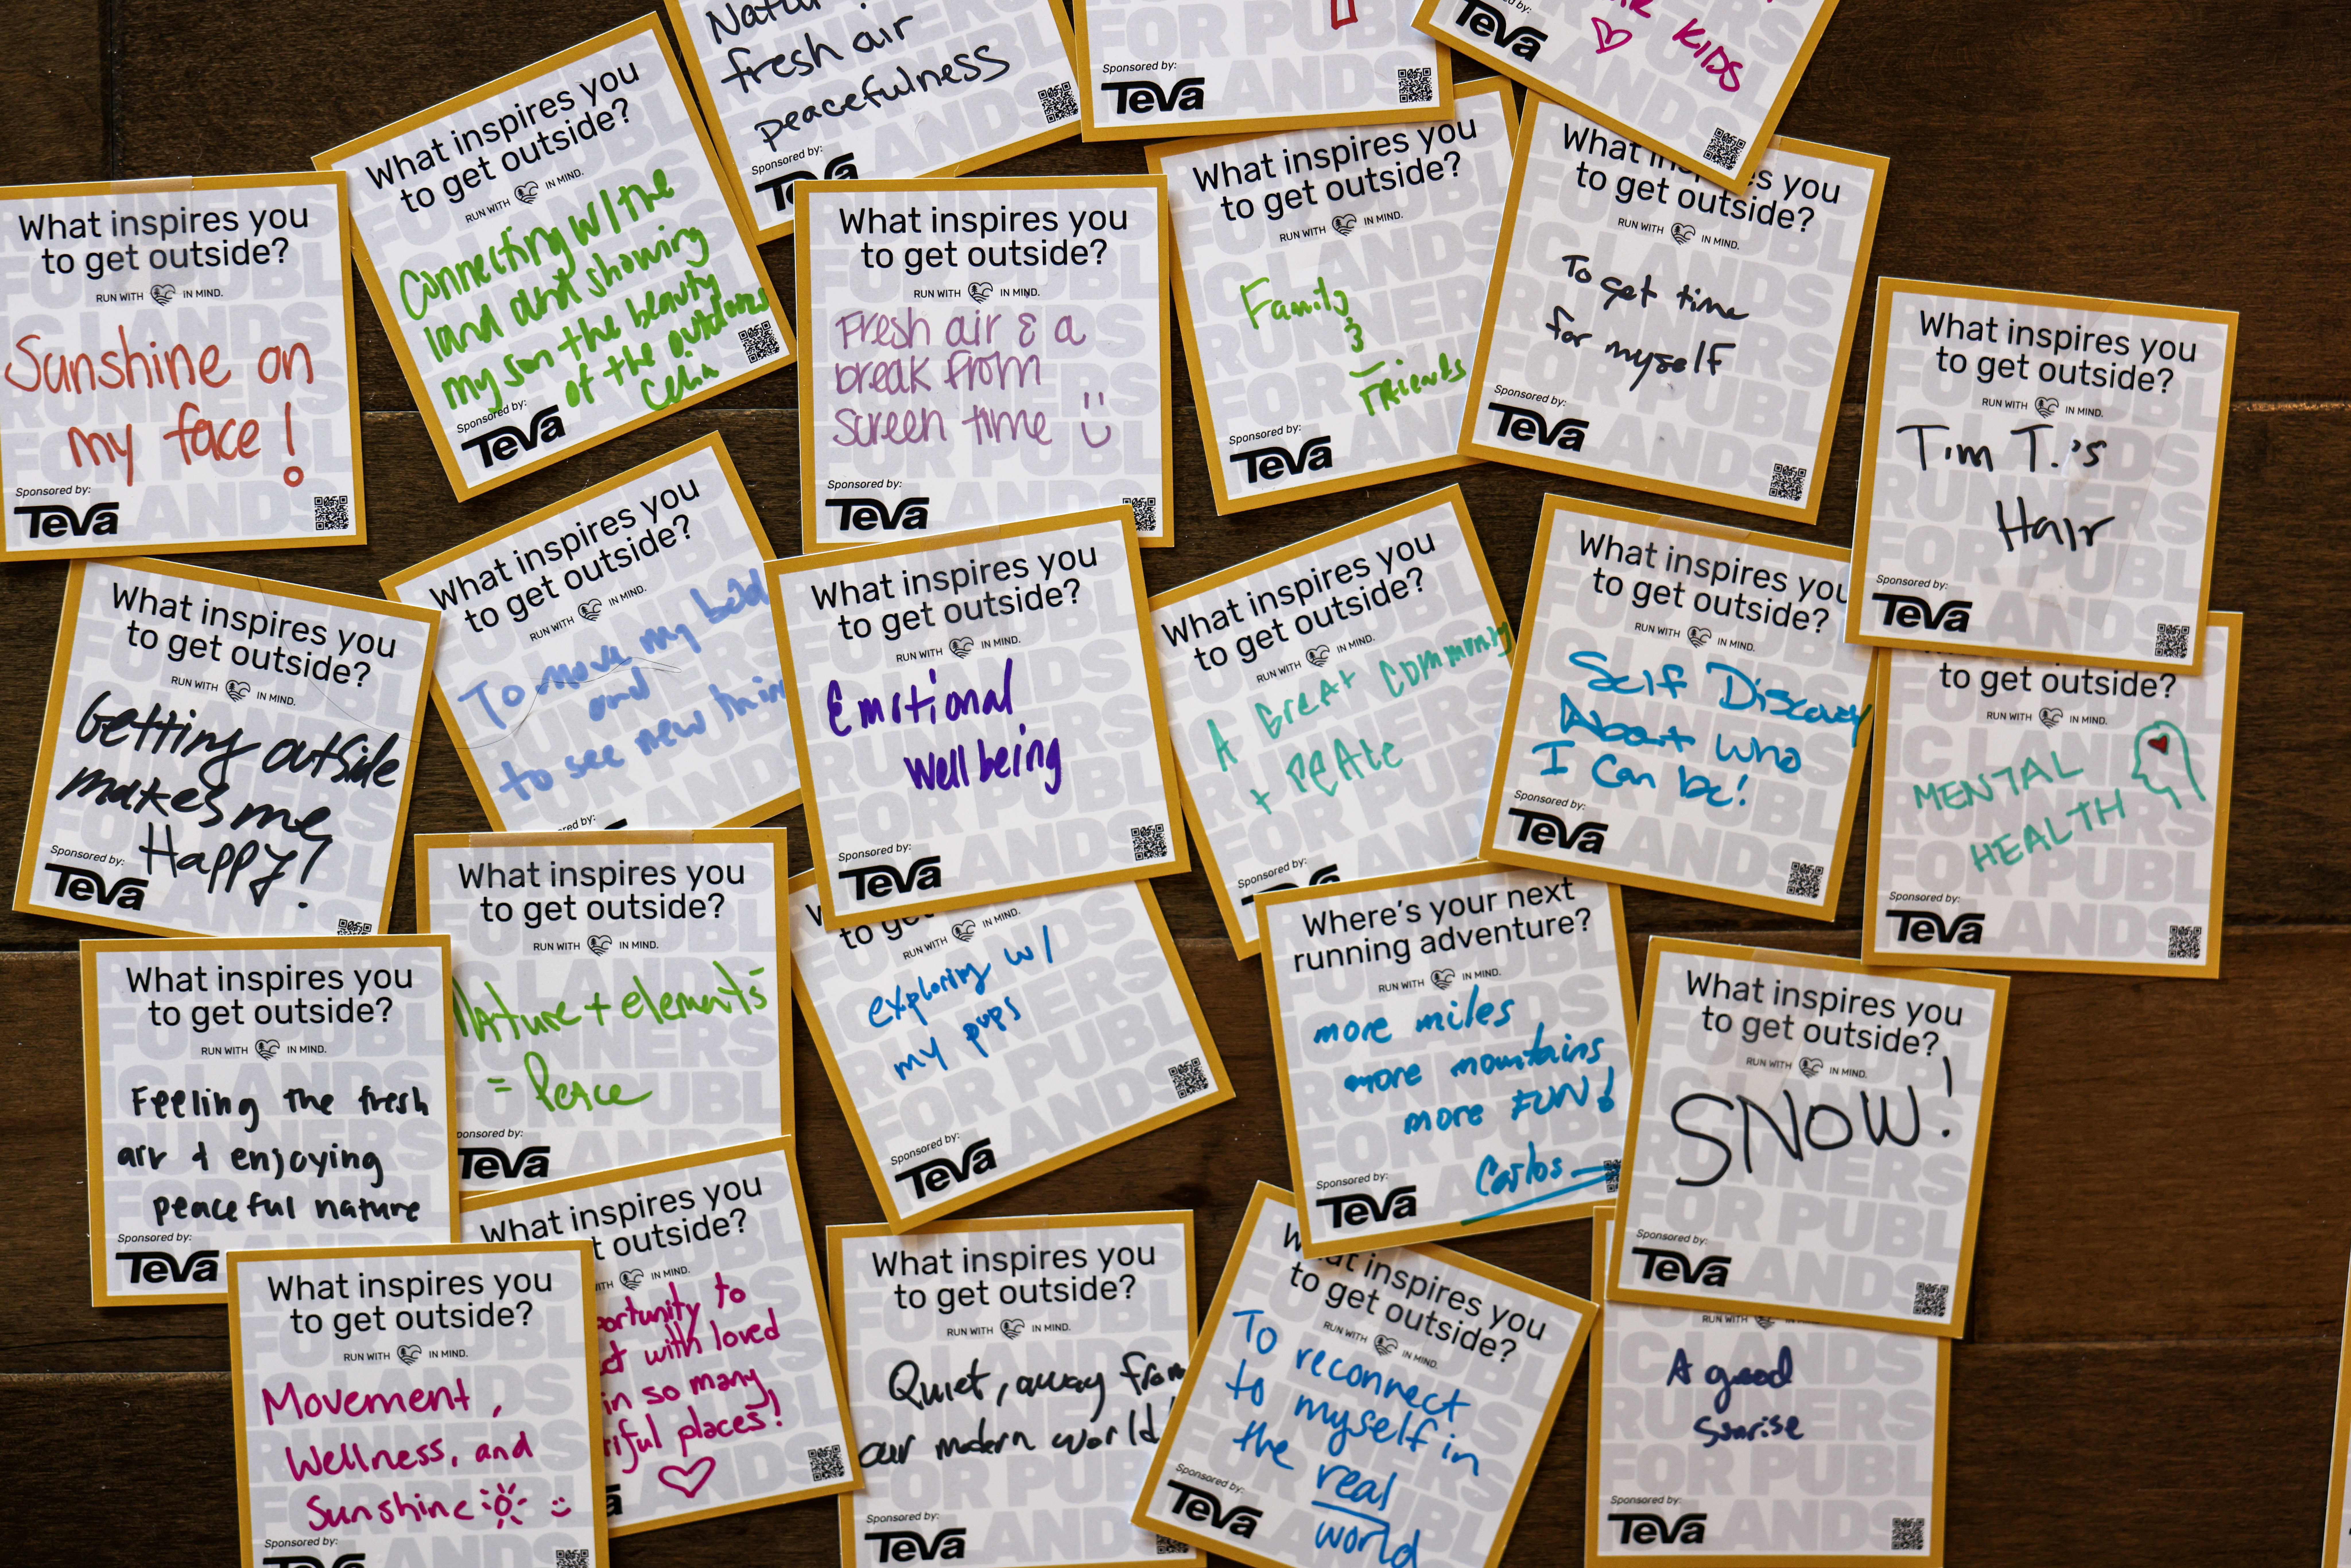 fresh air
peacefulness
Sponsored by:
Teva
FOR PUBL
LANDS
Sponsored by:
Teva
KIDS
Teva
What inspires you
to get outside?
RUN WITH IN MIND.
Sunshine on
my face!
Sponsored by:
Teva
What inspires you
to get outside?
RUN WITH IN MIND.
Connecting w/ the
land and showing
my son the beauty
of the outdoors
Celia
Sponsored by:
Teva
What inspires you
to get outside?
RUN WITH IN MIND.
Fresh air & a
break from
screen time
Sponsored by:
Teva
What inspires you
to get outside?
RUN WITH IN MIND.
Family
&
Friends
Sponsored by:
Teva
to get outside?
RUN WITH IN MIND.
To get time
for myself
Sponsored by:
Teva
What inspires you
to get outside?
RUN WITH IN MIND.
Tim T.'s
Hair
Sponsored by:
Teva
What inspires you
to get outside?
RUN WITH IN MIND.
Getting outside
makes me
Happy!
Sponsored by:
Teva
What inspires you
to get outside?
RUN WITH IN MIND.
To move my
and
to see new
What inspires you
to get outside?
RUN WITH IN MIND.
Emotional
Well being
Sponsored by:
Teva
What inspires you
to get outside?
RUN WITH IN MIND.
A Great Community
+ Peace
Sponsored by:
What inspires you
to get outside?
RUN WITH IN MIND.
Self Discovery
About who
I can be!
Sponsored by:
Teva
to get outside?
RUN WITH IN MIND.
MENTAL
HEALTH
Sponsored by:
Teva
What inspires you
to get outside?
RUN WITH IN MIND.
Feeling the fresh
air & enjoying
peaceful nature
Sponsored by:
Teva
What inspires you
to get outside?
RUN WITH IN MIND.
Nature + elements
= Peace
Teva
RUN WITH IN MIND.
exploring w/
my pups
Sponsored by:
Teva
Where's your next
running adventure?
RUN WITH IN MIND.
more miles
more mountains
more FUN!
Carlos
Sponsored by:
Teva
What inspires you
to get outside?
RUN WITH IN MIND.
SNOW!
Sponsored by:
Teva
What inspires you
to get outside?
RUN WITH IN MIND.
Movement,
Wellness, and
Sunshine
Sponsored by:
What inspires you
outside?
IN MIND.
to
with loved
in so many
places!
What inspires you
to get outside?
RUN WITH IN MIND.
Quiet, away from
our modern world!
Sponsored by:
Teva
inspires you
to get outside?
RUN WITH IN MIND.
To reconnect
to myself in
the real
world
Sponsored by:
Teva
RUN WITH IN MIND.
A good
sunrise
Sponsored by:
Teva